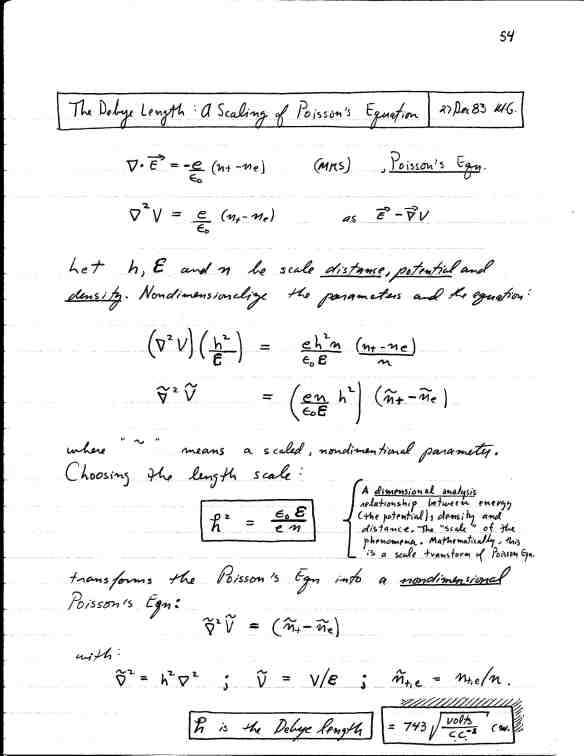 54
The Debye Length : A Scaling of Poisson's Equation 27 Dec 83
∇·E⃗ = -e/ε₀ (n₊-nₑ) (MKS) , Poisson's Eqn.
∇²V = e/ε₀ (n₊-nₑ) as E⃗ - ∇⃗V
Let h, ℰ and n be scale distance, potential and
density. Nondimensionalize the parameters and the equation:
(∇²V)(h²/ℰ) = eh²n/ε₀ℰ (n₊-nₑ)/n
∇̃²Ṽ = (en/ε₀ℰ h²) (ñ₊-ñₑ)
where "~" means a scaled, nondimentional parameter.
Choosing the length scale:
h² = ε₀ℰ/en
A dimensional analysis
relationship between energy
(the potential), density and
distance. The "scale" of the
phenomena. Mathematically, this
is a scale transform of Poisson Eqn.
transforms the Poisson's Eqn into a nondimensional
Poisson's Eqn:
∇̃²Ṽ = (ñ₊-ñₑ)
with:
∇̃² = h²∇² ; Ṽ = V/ℰ ; ñ₊,ₑ = n₊,ₑ/n.
h is the Debye length = 743 √(volts/cc⁻¹) cm.